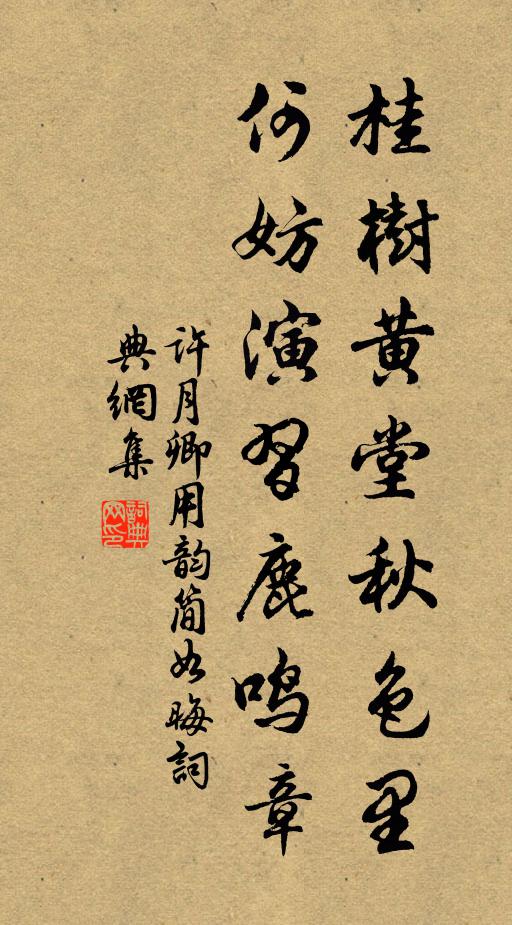 桂樹黄堂秋色里
何妨演習鹿鳴章
許月卿用韵简如晦詞
典網集
詞典
网印